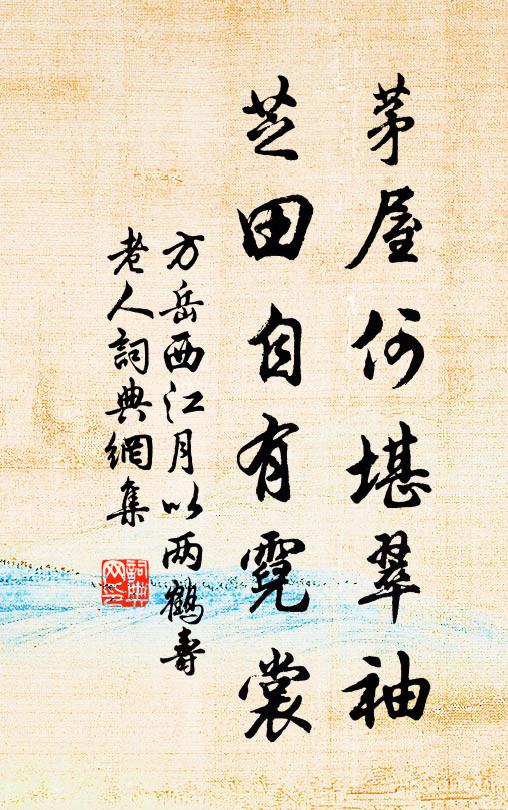 茅屋何堪翠袖
芝田自有霓裳
方岳西江月以两鶴壽
老人詞典網集
詞典網